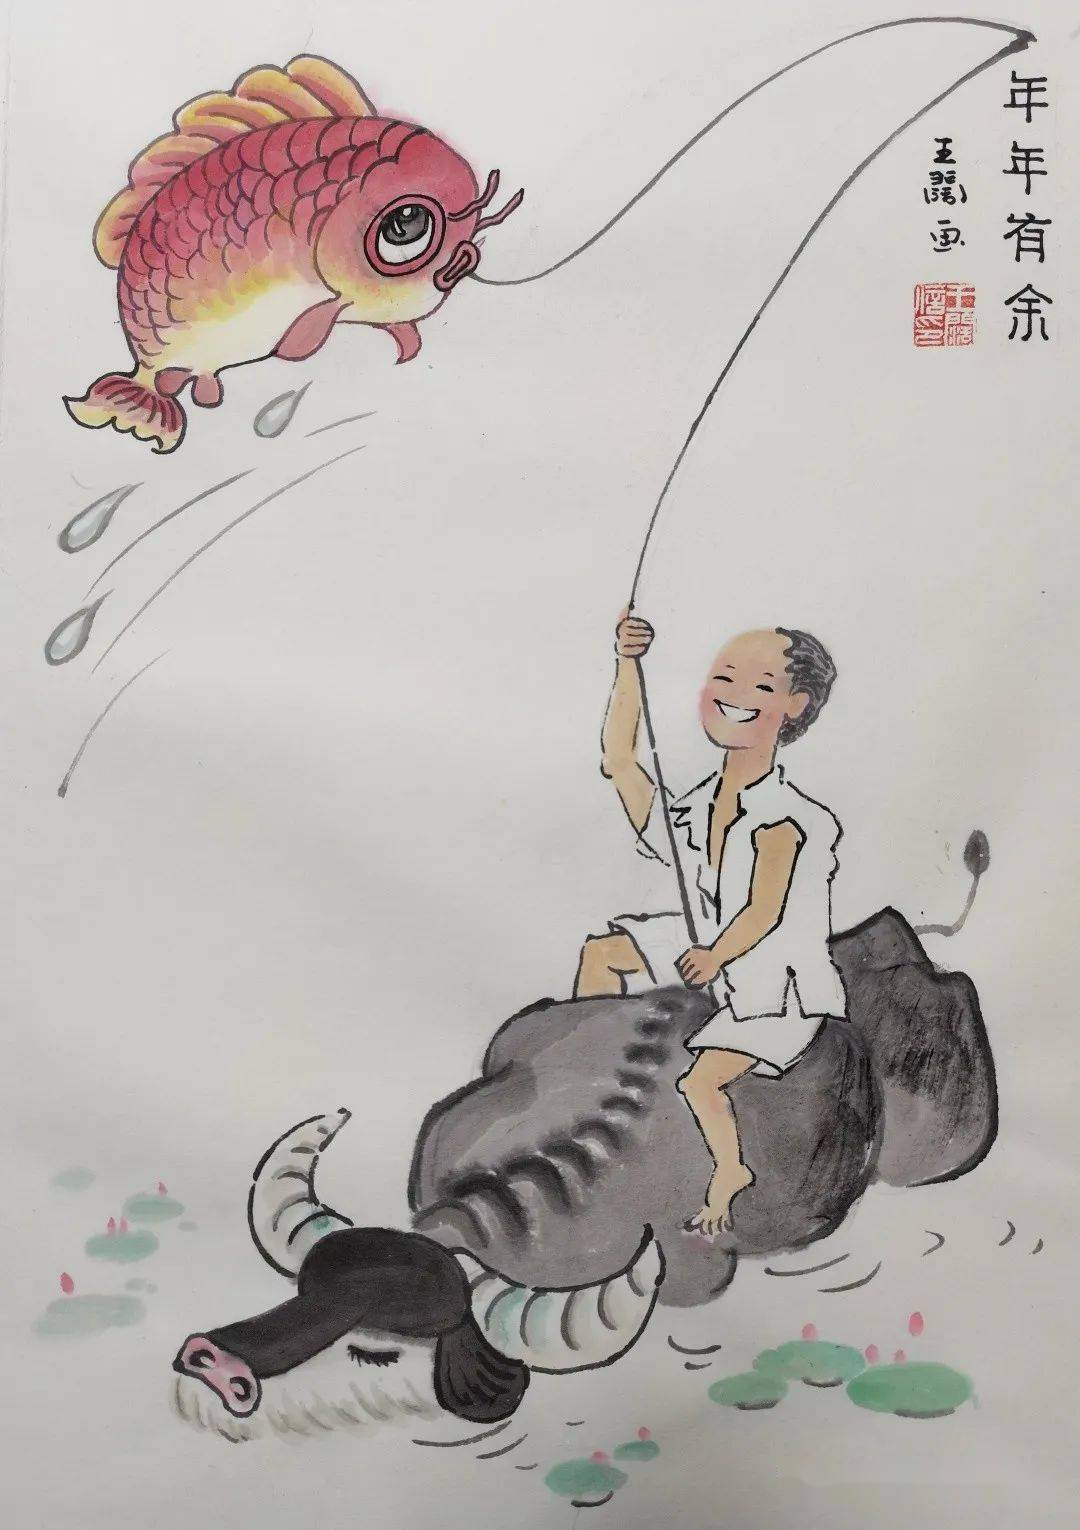 年年有余
王闊画